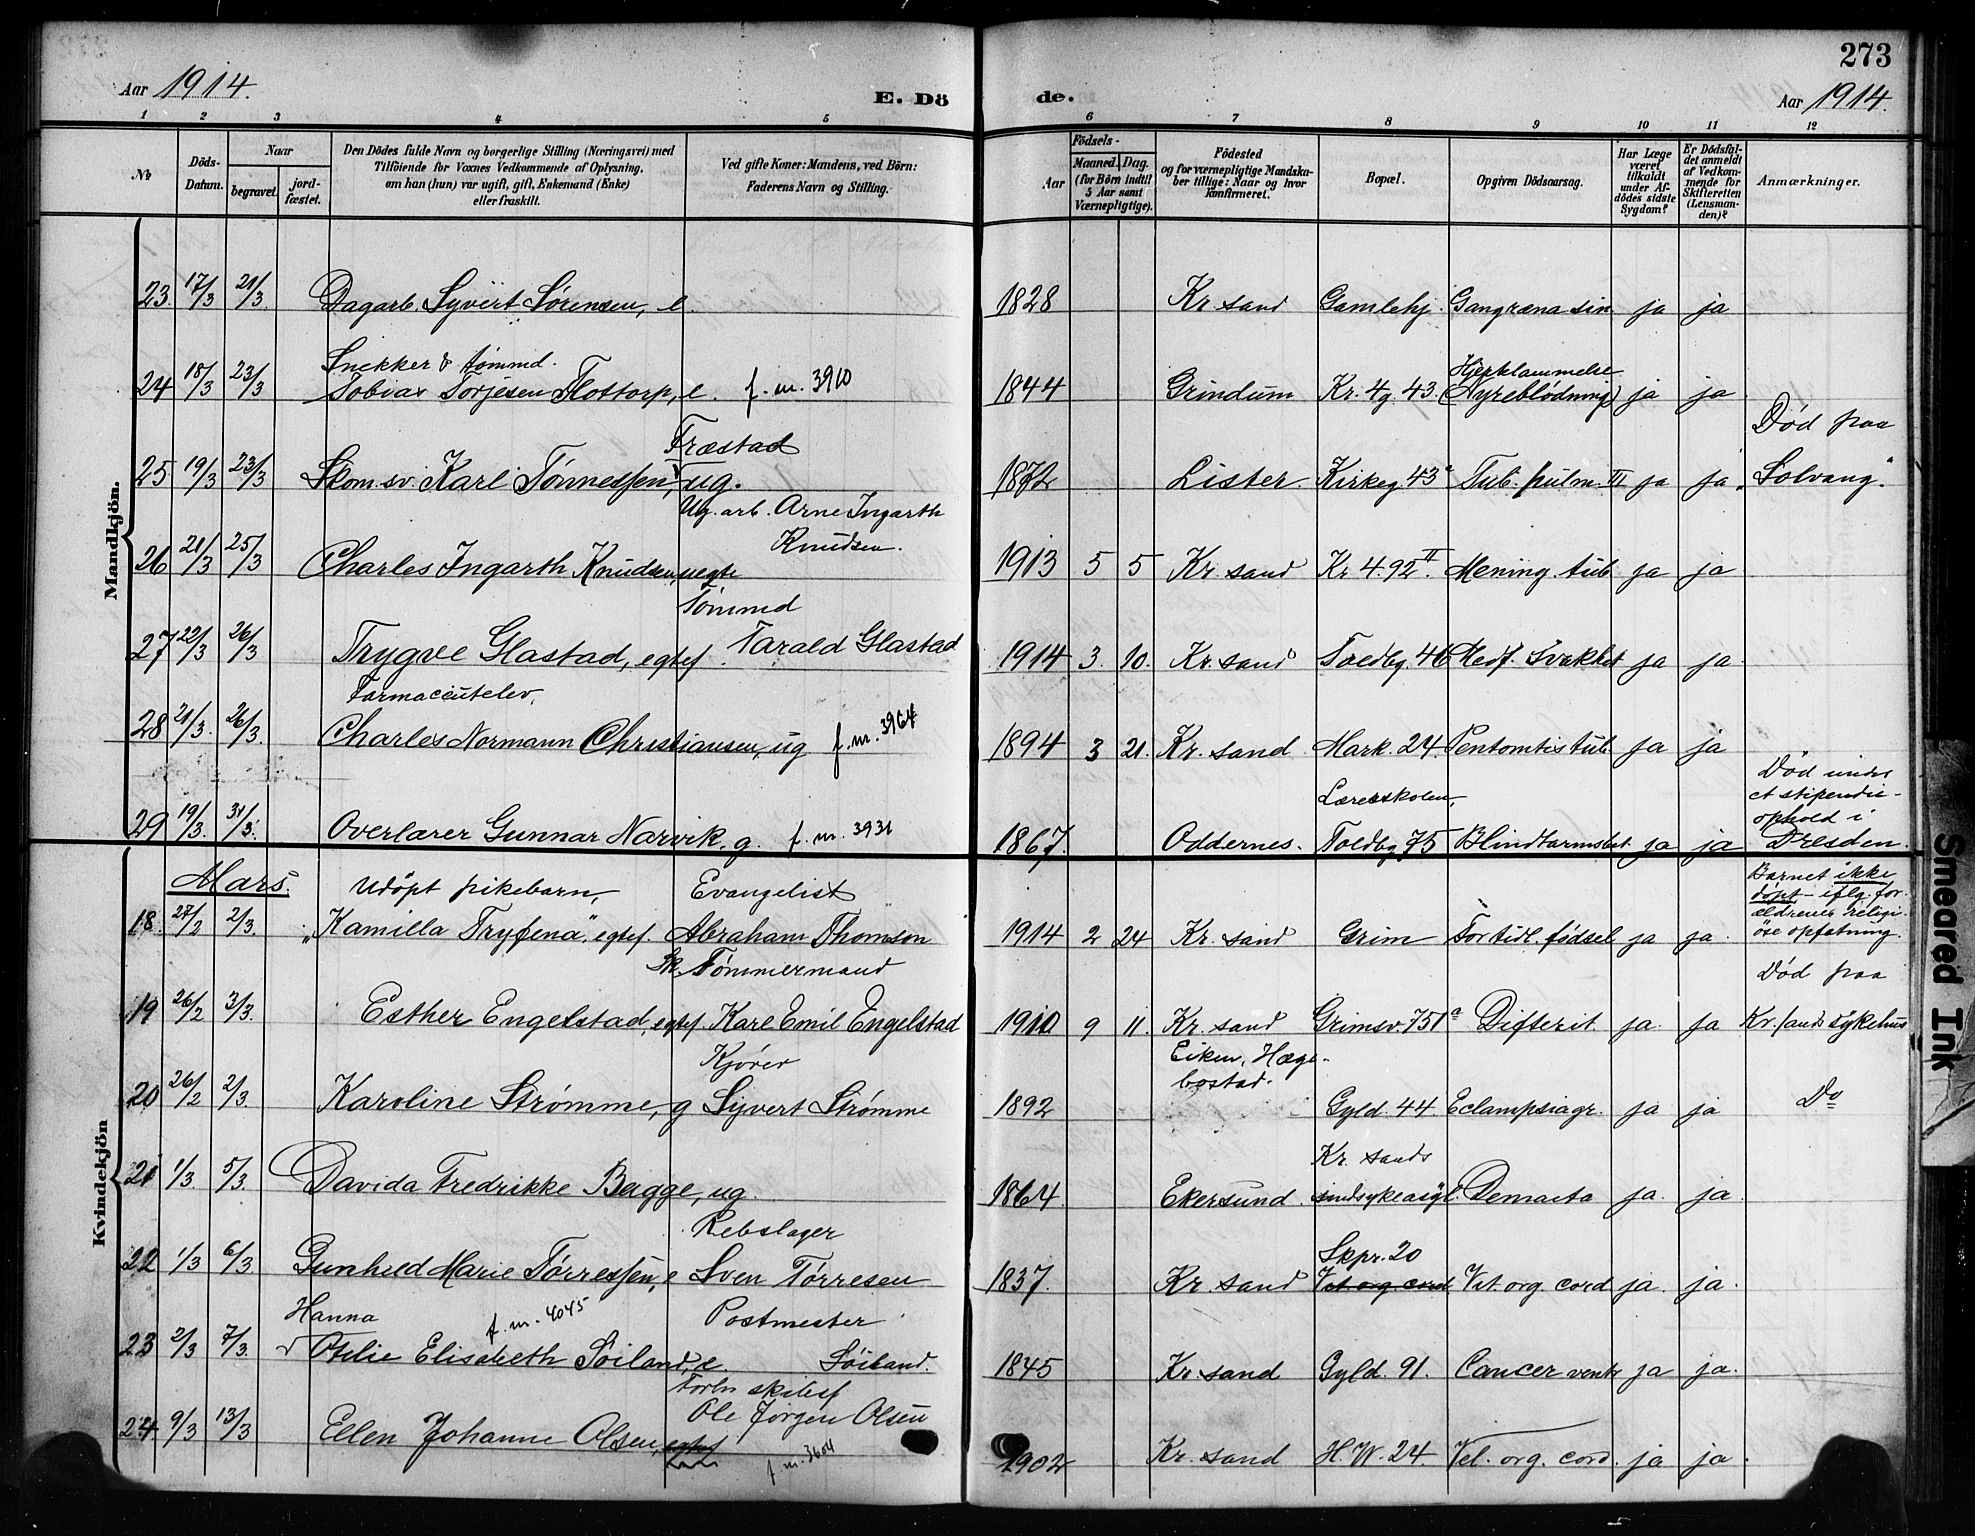 273
Aar 1914. E. Dö de. Aar 1914.
1 2 3 4 5 6 7 8 9 10 11 12
No
Döds-Datum.
Naar
begravet.
jord-fæstet.
Den Dödes fulde Navn og borgerlige Stilling (Næringsvei) med
Tilföiende for Voxnes Vedkommende af Oplysning,
om han (hun) var ugift, gift, Enkemand (Enke)
eller fraskilt.
Ved gifte Koner: Mandens, ved Börn:
Faderens Navn og Stilling.
Födsels-
Aar
Maaned. Dag.
(for Börn indtil
5 Aar samt
Værnepligtige).
Födested
og for værnepligtige Mandska-
ber tillige: Naar og hvor
konfirmeret.
Bopæl.
Opgiven Dödsaarsag.
Har Læge
været
tilkaldt
under Af-
dödes sidste
Sygdom?
Er Dödsfal-
det anmeldt
af Vedkom-
mende for
Skifteretten
(Lensman-
den)?
Anmærkninger.
Mandkjön.
23. 17/3 21/3. Dagarb. Syvert Sörensen, e. 1828 Kr. sand Gamlehj. Gangræna sin ja ja
Snekker & tømmd. Hjerklammelse
24 18/3 23/3 Tobias Torjesen Flottorp, e. f. m. 3910 1844 Grindum Kr. 4g. 43. (Nyreblödning) ja ja
Træstad Död paa
25 19/3 23/3 Skom.sv. Karl Tønnessen, ug. 1872 Lister Kirkeg. 43a Tub. pulm. III ja ja „Solvang."
Ug. arb. Arne Ingarth
Knudsen.
26 21/3 25/3 Charles Ingarth Knudsen, uegte 1913 5 5 Kr. sand Kr. 4. 92 II. Mening. tub ja ja
Tömmd
27 22/3 26/3 Trygve Glastad, egtef. Tarald Glastad 1914 3. 10. Kr. sand Toldbg. 46 Medf. Svakhet ja ja.
Farmaceutelev.
28 21/3. 26/3. Charles Normann Christiansen, ug f. m. 3964 1894 3 21. Kr. sand. Mark. 24. Pentomtis tub ja ja
Læresskolen, Död under
et stipendie-
ophold i
29 19/3. 31/3. Overlærer Gunnar Narvik. g. f. m. 3931 1867. Oddernes. Toldbg 75 Blindtarmsbet ja ja Dresden.
Kvindekjön
Mars. Udöpt pikebarn, Evangelist Barnet ikke
döpt - iflg. for-
ældrenes religi-
öse opfatning.
18. 27/2 2/3. „Kamilla Tryfena", egtef. Abraham Thomson 1914 2 24 Kr. sand Grim For tidl. födsel ja ja.
Sk. Tömmermand Död paa
19 26/2 3/3. Esther Engelstad, egtef. Karl Emil Engelstad 1910 9 11. Kr. sand Grimsv. 751a Difterit ja. ja Kr.sands sykehus
Kjörer Eiken, Hæge-
bostad.
20 26/2 2/3. Karoline Strømme, g Syvert Strømme 1892 Gyld. 44 Eclampsia gr. ja ja Do
Kr. sands
21 1/3. 5/3. Davida Fredrikke Bagge, ug. 1864. Ekersund. sindsykeasyl. Demaeta ja. ja.
Rebslager Skpr. 20
22 1/3 6/3. Gunhild Marie Tørressen, e Sven Törresen 1837. Kr. sand Vit. org. cord Vit. org. cord ja. ja.
Hanna f. m. 4045 Postmester
23 2/3 7/3. Otelie Elisabeth Söiland, e. Söiland. 1845 Kr. sand Gyld. 91. Cancer ventr ja ja.
Forhv skibsf
Ole Jörgen Olsen
24 9/3 13/3 Ellen Johanne Olsen, egtef f. m. 3604 1902 Kr. sand H. W. 24. Vel. org. cord. ja ja.
Smeared Ink